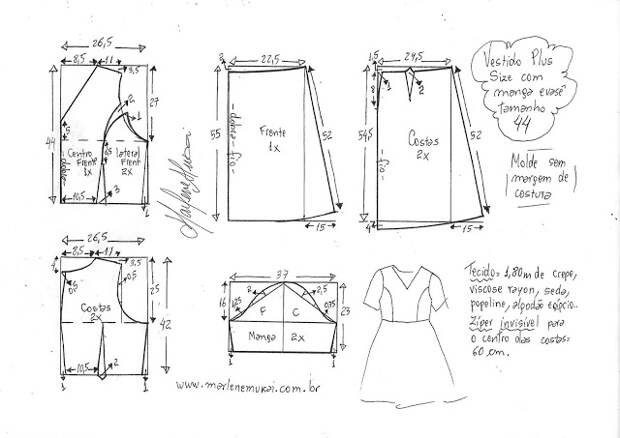 26,5
8,5
11
3,5
2
1
27
15
44
Centro
Frente
1x
lateral
Frente
2x
1,5
dobra
10,5
3
1
Marlene Mukai
3
22,5
55
dobra
Fio
Frente
1x
52
15
1,5
24,5
8
1
2
54,5
Fio
Costas
2x
52
4
15
Vestido Plus
Size com
manga evasê
tamanho
44
Molde sem
margem de
costura
26,5
8,5
11
3,5
0,5
25
42
Costas
2x
10,5
2
1
1
37
16
2
2,5
F
C
23
Manga
2x
1
1
www.marlenemukai.com.br
Tecido: 1,80m de crepe,
viscose rayon, seda,
popeline, algodão egípcio.
Zíper invisível para
o centro das costas:
60 cm.